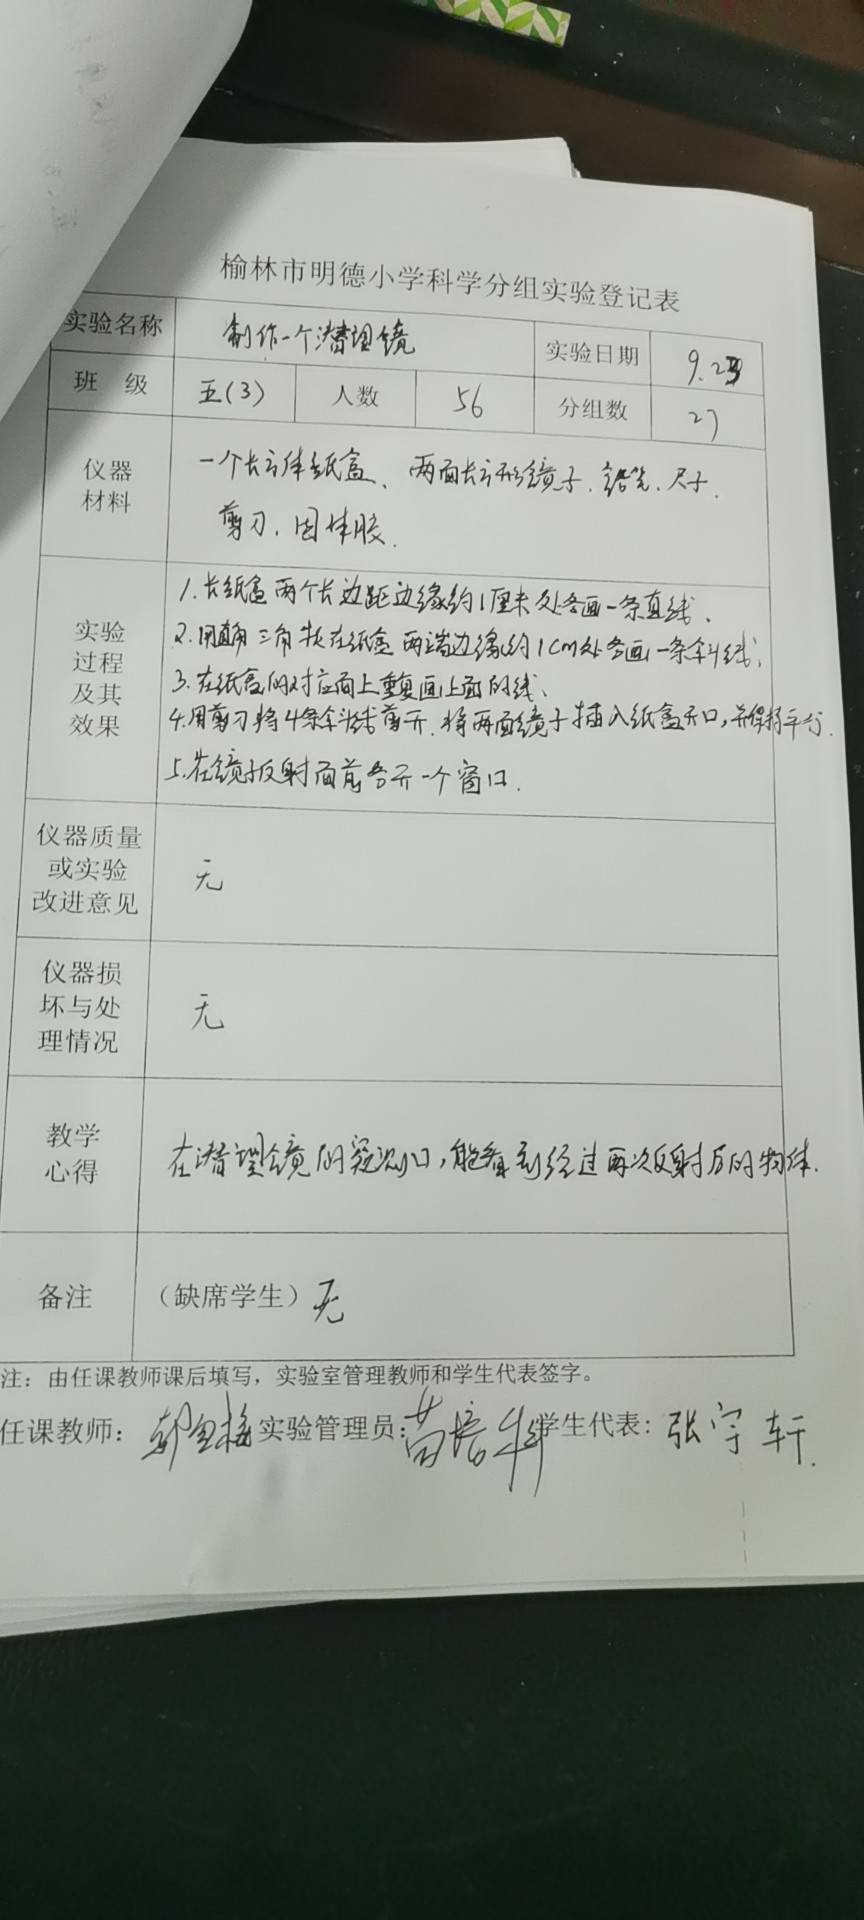 榆林市明德小学科学分组实验登记表
实验名称 制作一个潜望镜 实验日期 9.23
班 级 五(3) 人数 56 分组数 27
仪器
材料
一个长方体纸盒、两面长方形镜子、铅笔、尺子、
剪刀、固体胶.
实验
过程
及其
效果
1.长纸盒两个长边距边缘约1厘米处各画一条直线.
2.用直角三角板在纸盒两端边缘约1cm处各画一条斜线.
3.在纸盒的对应面上重复画上面的线.
4.用剪刀将4条斜线剪开.将两面镜子插入纸盒开口,并保持平行.
5.在镜子反射面前各开一个窗口.
仪器质量
或实验
改进意见
无
仪器损
坏与处
理情况
无
教学
心得
在潜望镜的观测口,能看到经过两次反射后的物体.
备注 (缺席学生) 无
注：由任课教师课后填写，实验室管理教师和学生代表签字。
任课教师: 实验管理员: 学生代表: 张宇轩.